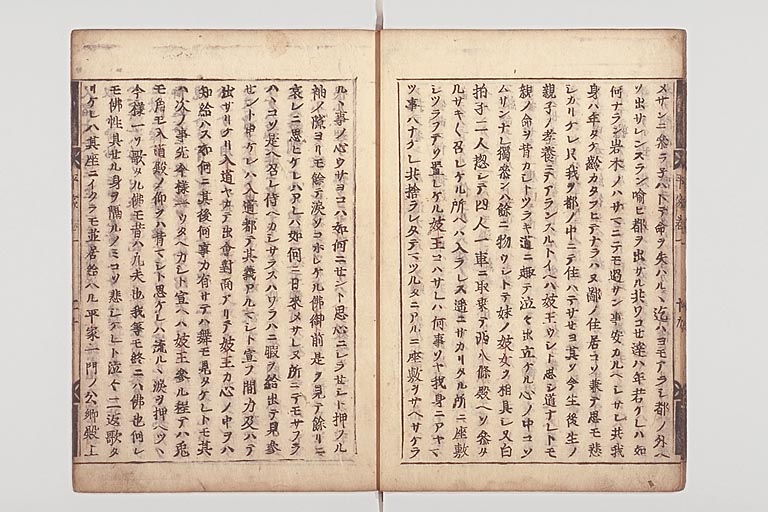 メサンニ参ラ子ハトテ命ヲ失ハルヽ迄ハヨモアラシ都ノ外ヘ
ソ出サレンスラン喩ヒ都ヲ出サル共ワコセ達ハ年若ケレハ如
何ナラン岩木ノハサマニテモ過サン事安カルヘシサレ共我
身ハ年タケ齢カタフヒテナラハヌ鄙ノ住居コソ兼テ思モ悲
シカリケレ只我ヲ都ノ中ニテ住ハテサセヨ其ソ今生後生ノ
親子ノ孝養ニテアランスルトイヘハ妓王ウシト思シ道ナレトモ
親ノ命ヲ背カシトツラキ道ニ趣テ泣々出立ケル心ノ中コソ
ムサンナレ獨参ンハ餘ニ物ウシトテ妹ノ妓女ヲ相具シ又白
拍子二人惣シテ四人一車ニ取乗テ西八條殿ヘソ参タ
ルサキ〱召レケル所ヘハ入ラレス遥ニサカリタル所ニ座敷
シツラフテソ置レケル妓王コハサレハ何事ソヤ我身ニアヤマ
ツ事ハナケレ共捨ラレタテマツルタニアルニ座敷ヲサヘサケラ
ルヽ事ノ心ウサヨコハ如何ニセント思心ニシラセシト押フル
袖ノ隙ヨリモ餘テ涙ソコホレケル佛御前是ヲ見テ餘リニ
哀レニ思ヒケレハアレハ如何ニ日来メサレヌ所ニテモサフラ
ハヽコソ是ヘ召レ侍ヘカシサラスハワラハニ暇ヲ給出テ見参
セント申ケレハ入道都テ其義アルマシト宣フ間力及ハテ
出サリケリ入道ヤカテ出會對面アリテ妓王カ心ノ中ヲハ
知給ハス如何ニ其後何事カ有サテハ舞モ見タケレトモ其
ハ次ノ事先今様一ツウタヘカシト宣ヘハ妓王参ル程テハ兎
モ角モ入道殿ノ仰ヲハ背マシト思ケレハ流ルヽ涙ヲ押ヘツヽ
今様一ツソ歌タル佛モ昔ハ凡夫也我等モ終ニハ佛也何レ
モ佛性具セル身ヲ隔ルノミコソ悲シケレト泣々二返歌タ
リケレハ其座ニイクラモ並居給ヘル平家一門ノ公卿殿上